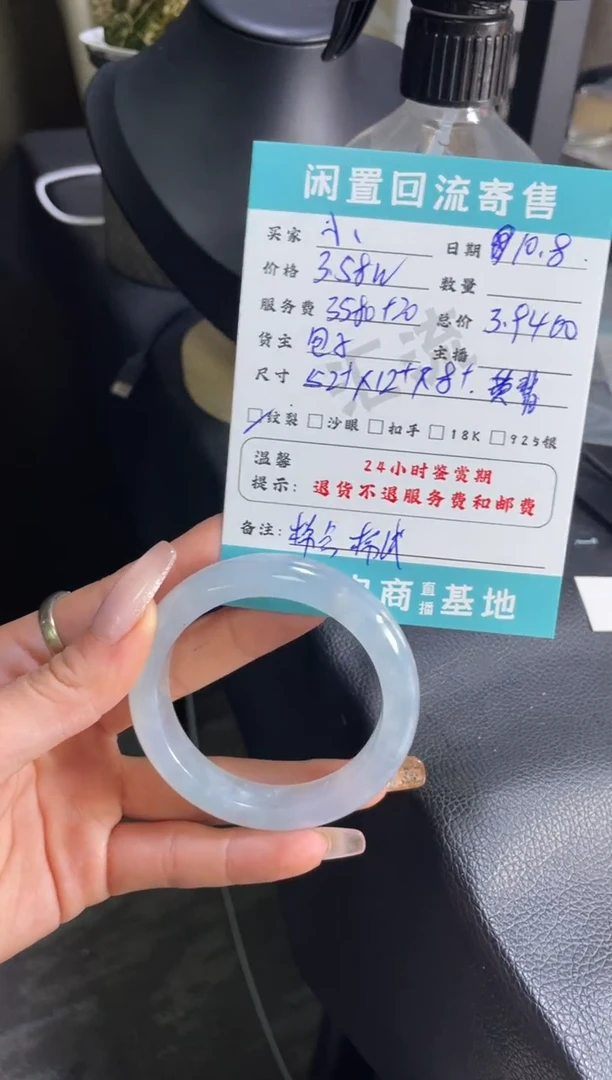 闲置回流寄售
买家 小、 日期 10.8.
价格 3.58W 数量
服务费 3580+20 总价 3.9400
货主 主播
尺寸 52+X12+X8+.
☑纹裂 □沙眼 □扣手 □18K □925银
温馨提示: 24小时鉴赏期
退货不退服务费和邮费
备注:
电商直播基地
汇流